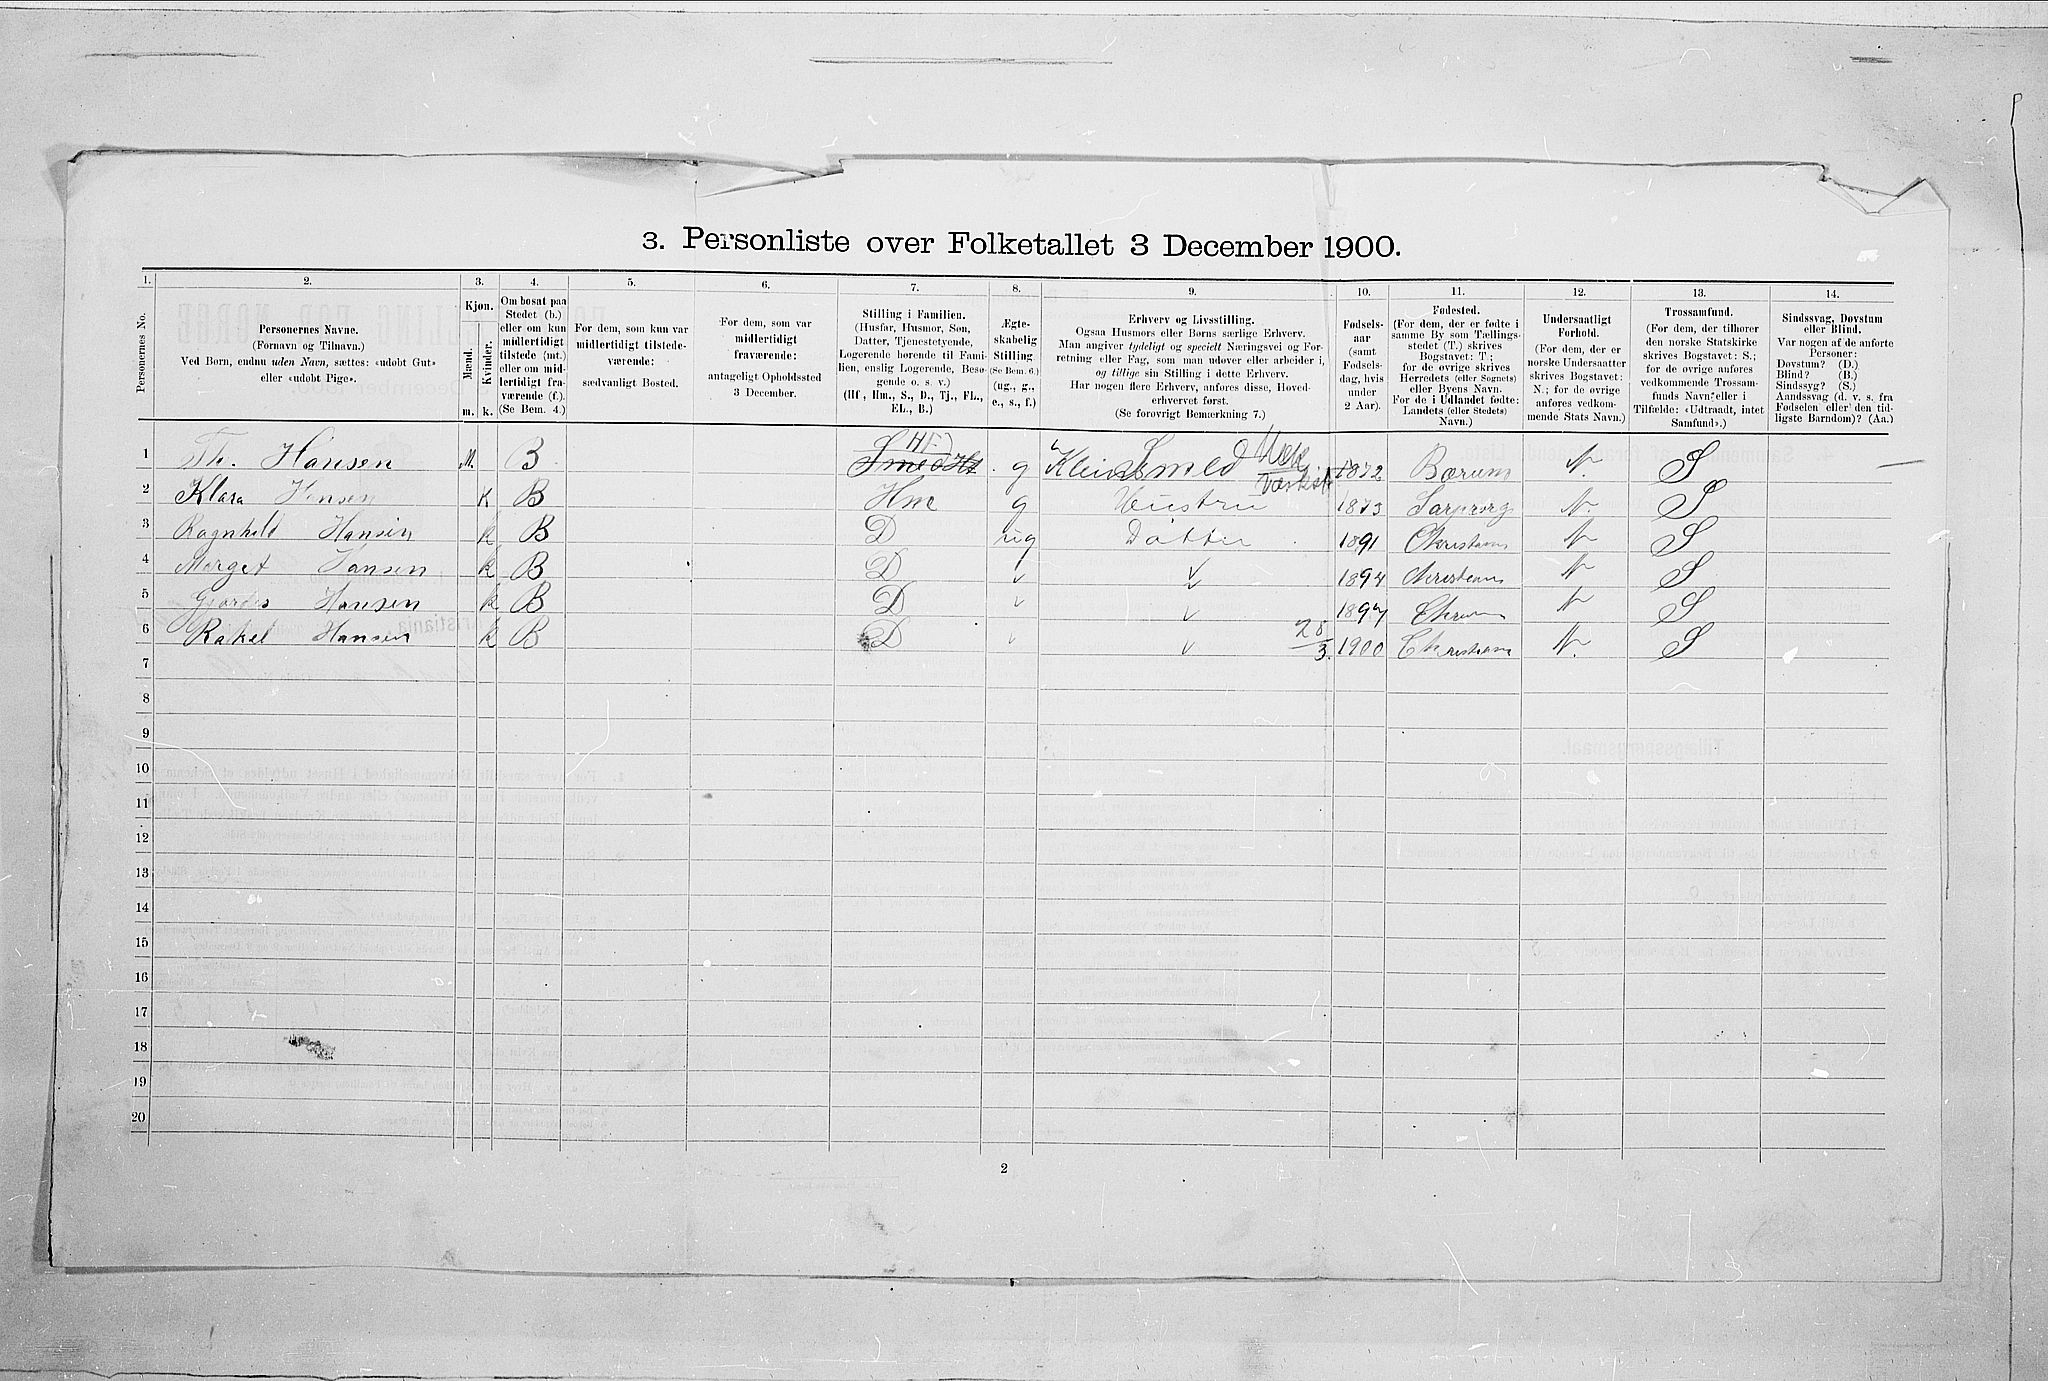 3. Personliste over Folketallet 3 December 1900.
1. 2. 3. 4. 5. 6. 7. 8. 9. 10. 11. 12. 13. 14.
Personernes No.
Personernes Navne.
(Fornavn og Tilnavn.)
Ved Børn, endnu uden Navn, sættes: «udøbt Gut»
eller «udøbt Pige».
Kjøn.
Mænd.
Kvinder.
m. k.
Om bosat paa
Stedet (b.)
eller om kun
midlertidigt
tilstede (mt.)
eller om mid-
lertidigt fra-
værende (f.).
(Se Bem. 4.)
For dem, som kun var
midlertidigt tilstede-
værende:
sædvanligt Bosted.
For dem, som var
midlertidigt
fraværende:
antageligt Opholdssted
3 December.
Stilling i Familien.
(Husfar, Husmor, Søn,
Datter, Tjenestetyende,
Logerende hørende til Fami-
lien, enslig Logerende, Besø-
gende o. s. v.)
(Hf., Hm., S., D., Tj., FL.,
EL., B.)
Ægte-
skabelig
Stilling
(Se Bem. 6.)
(ug., g.,
e., s., f.)
Erhverv og Livsstilling.
Ogsaa Husmors eller Børns særlige Erhverv.
Man angiver tydeligt og specielt Næringsvei og For-
retning eller Fag, som man udøver eller arbeider i,
og tillige sin Stilling i dette Erhverv.
Har nogen flere Erhverv, anføres disse, Hoved-
erhvervet først.
(Se forøvrigt Bemærkning 7.)
Fødsels-
aar
(samt
Fødsels-
dag, hvis
under
2 Aar).
Fødested.
(For dem, der er fødte i
samme By som Tællings-
stedet (T.) skrives
Bogstavet: T;
for de øvrige skrives
Herredets (eller Sognets)
eller Byens Navn.
For de i Udlandet fødte:
Landets (eller Stedets)
Navn.)
Undersaatligt
Forhold.
(For dem, der er
norske Undersaatter
skrives Bogstavet:
N.; for de øvrige
anføres vedkom-
mende Stats Navn.)
Trossamfund.
(For dem, der tilhører
den norske Statskirke
skrives Bogstavet: S.;
for de øvrige anføres
vedkommende Trossam-
funds Navn, eller i
Tilfælde: «Udtraadt, intet
Samfund».)
Sindssvag, Døvstum
eller Blind.
Var nogen af de anførte
Personer:
Døvstum? (D.)
Blind? (B.)
Sindssyg? (S.)
Aandssvag (d. v. s. fra
Fødselen eller den tid-
ligste Barndom)? (Aa.)
1 Th. Hansen M. B Smed Hf g Kleinsmed Mek Værksted 1872 Bærum N. S
2 Klara Hansen K B Hm g Hustru 1873 Sarpsorg N. S
3 Ragnhild Hansen k B D ug Datter 1891 Christiania N S
4 Marget Hansen k B D 1894 Christiania N S
5 Gjordis Hansen k B D 1897 N S
6 Rakel Hansen k B D 28/3. 1900 Christiania N. S
7
8
9
10
11
12
13
14
15
16
17
18
19
20
2